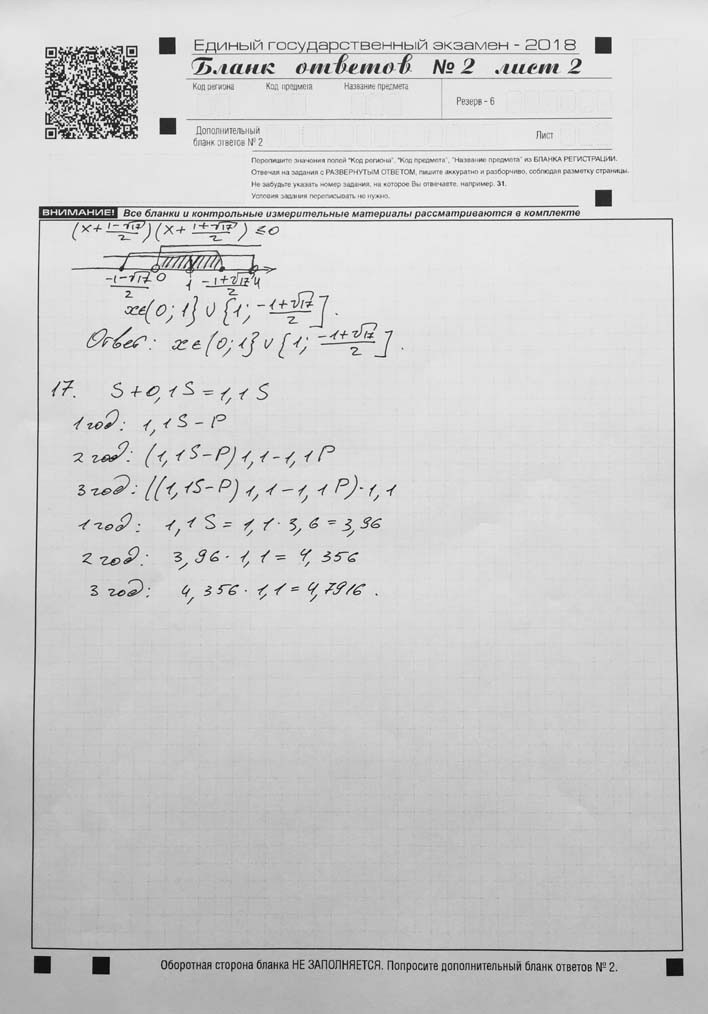 Единый государственный экзамен - 2018
Бланк ответов № 2 лист 2
Код региона Код предмета Название предмета
Резерв - 6
Дополнительный
бланк ответов № 2
Лист
Перепишите значения полей "Код региона", "Код предмета", "Название предмета" из БЛАНКА РЕГИСТРАЦИИ.
Отвечая на задания с РАЗВЕРНУТЫМ ОТВЕТОМ, пишите аккуратно и разборчиво, соблюдая разметку страницы.
Не забудьте указать номер задания, на которое Вы отвечаете, например, 31.
Условия задания переписывать не нужно.
ВНИМАНИЕ! Все бланки и контрольные измерительные материалы рассматриваются в комплекте
(x + (1-√17)/2)(x + (1+√17)/2) ≤ 0
(-1-√17)/2 0 1 (-1+√17)/2 4
x∈(0; 1} ∪ {1; (-1+√17)/2].
Ответ: x∈(0; 1} ∪ {1; (-1+√17)/2].
17. S + 0,1S = 1,1S
1 год: 1,1S - P
2 год: (1,1S-P) 1,1 - 1,1P
3 год: ((1,1S-P) 1,1 - 1,1P) · 1,1
1 год: 1,1S = 1,1 · 3,6 = 3,96
2 год: 3,96 · 1,1 = 4,356
3 год: 4,356 · 1,1 = 4,7916.
Оборотная сторона бланка НЕ ЗАПОЛНЯЕТСЯ. Попросите дополнительный бланк ответов № 2.